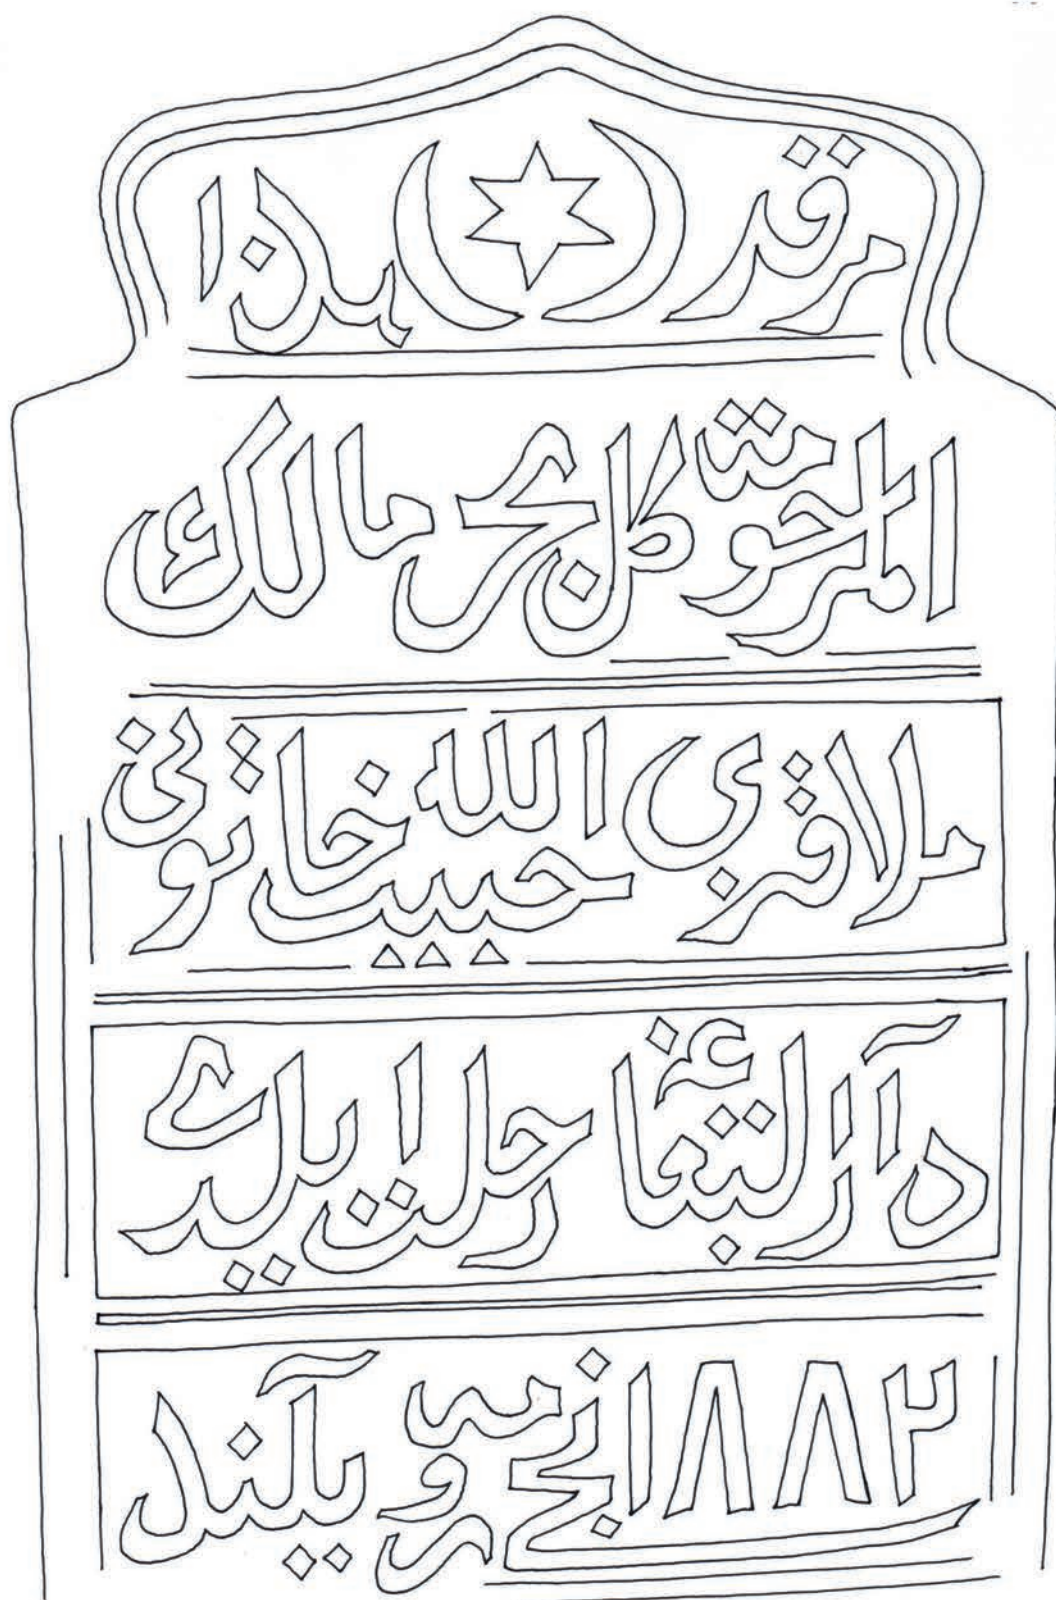 مرقد هذا
المرحومة كلبحر مالك
ملا قزى حبيب الله خاتونى
دار البقاغه رحلت ايلدى
١٨٨٢ نجى